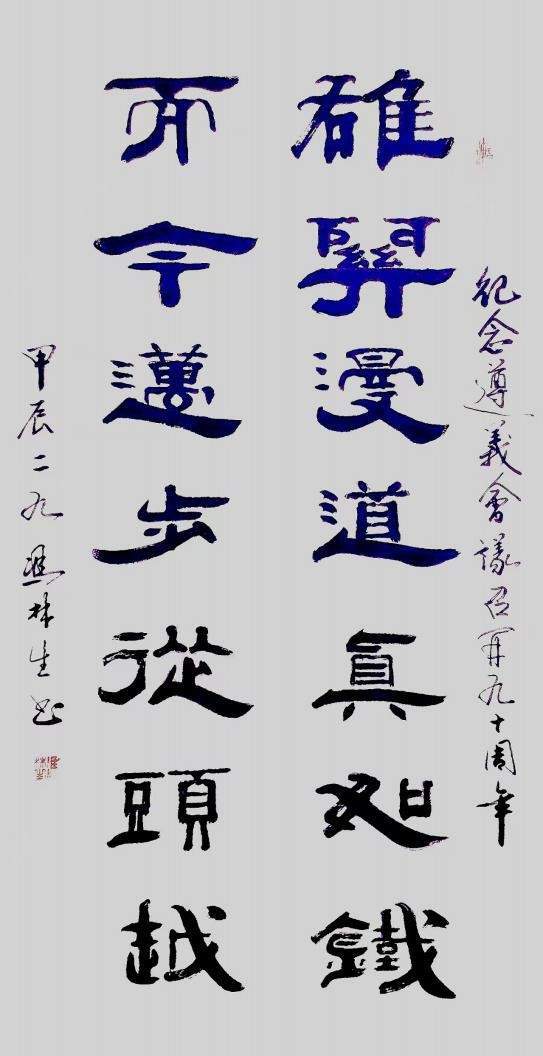 紀念遵義會議召開九十周年
雄關漫道真如鐵
而今邁步從頭越
甲辰二九馮林生书